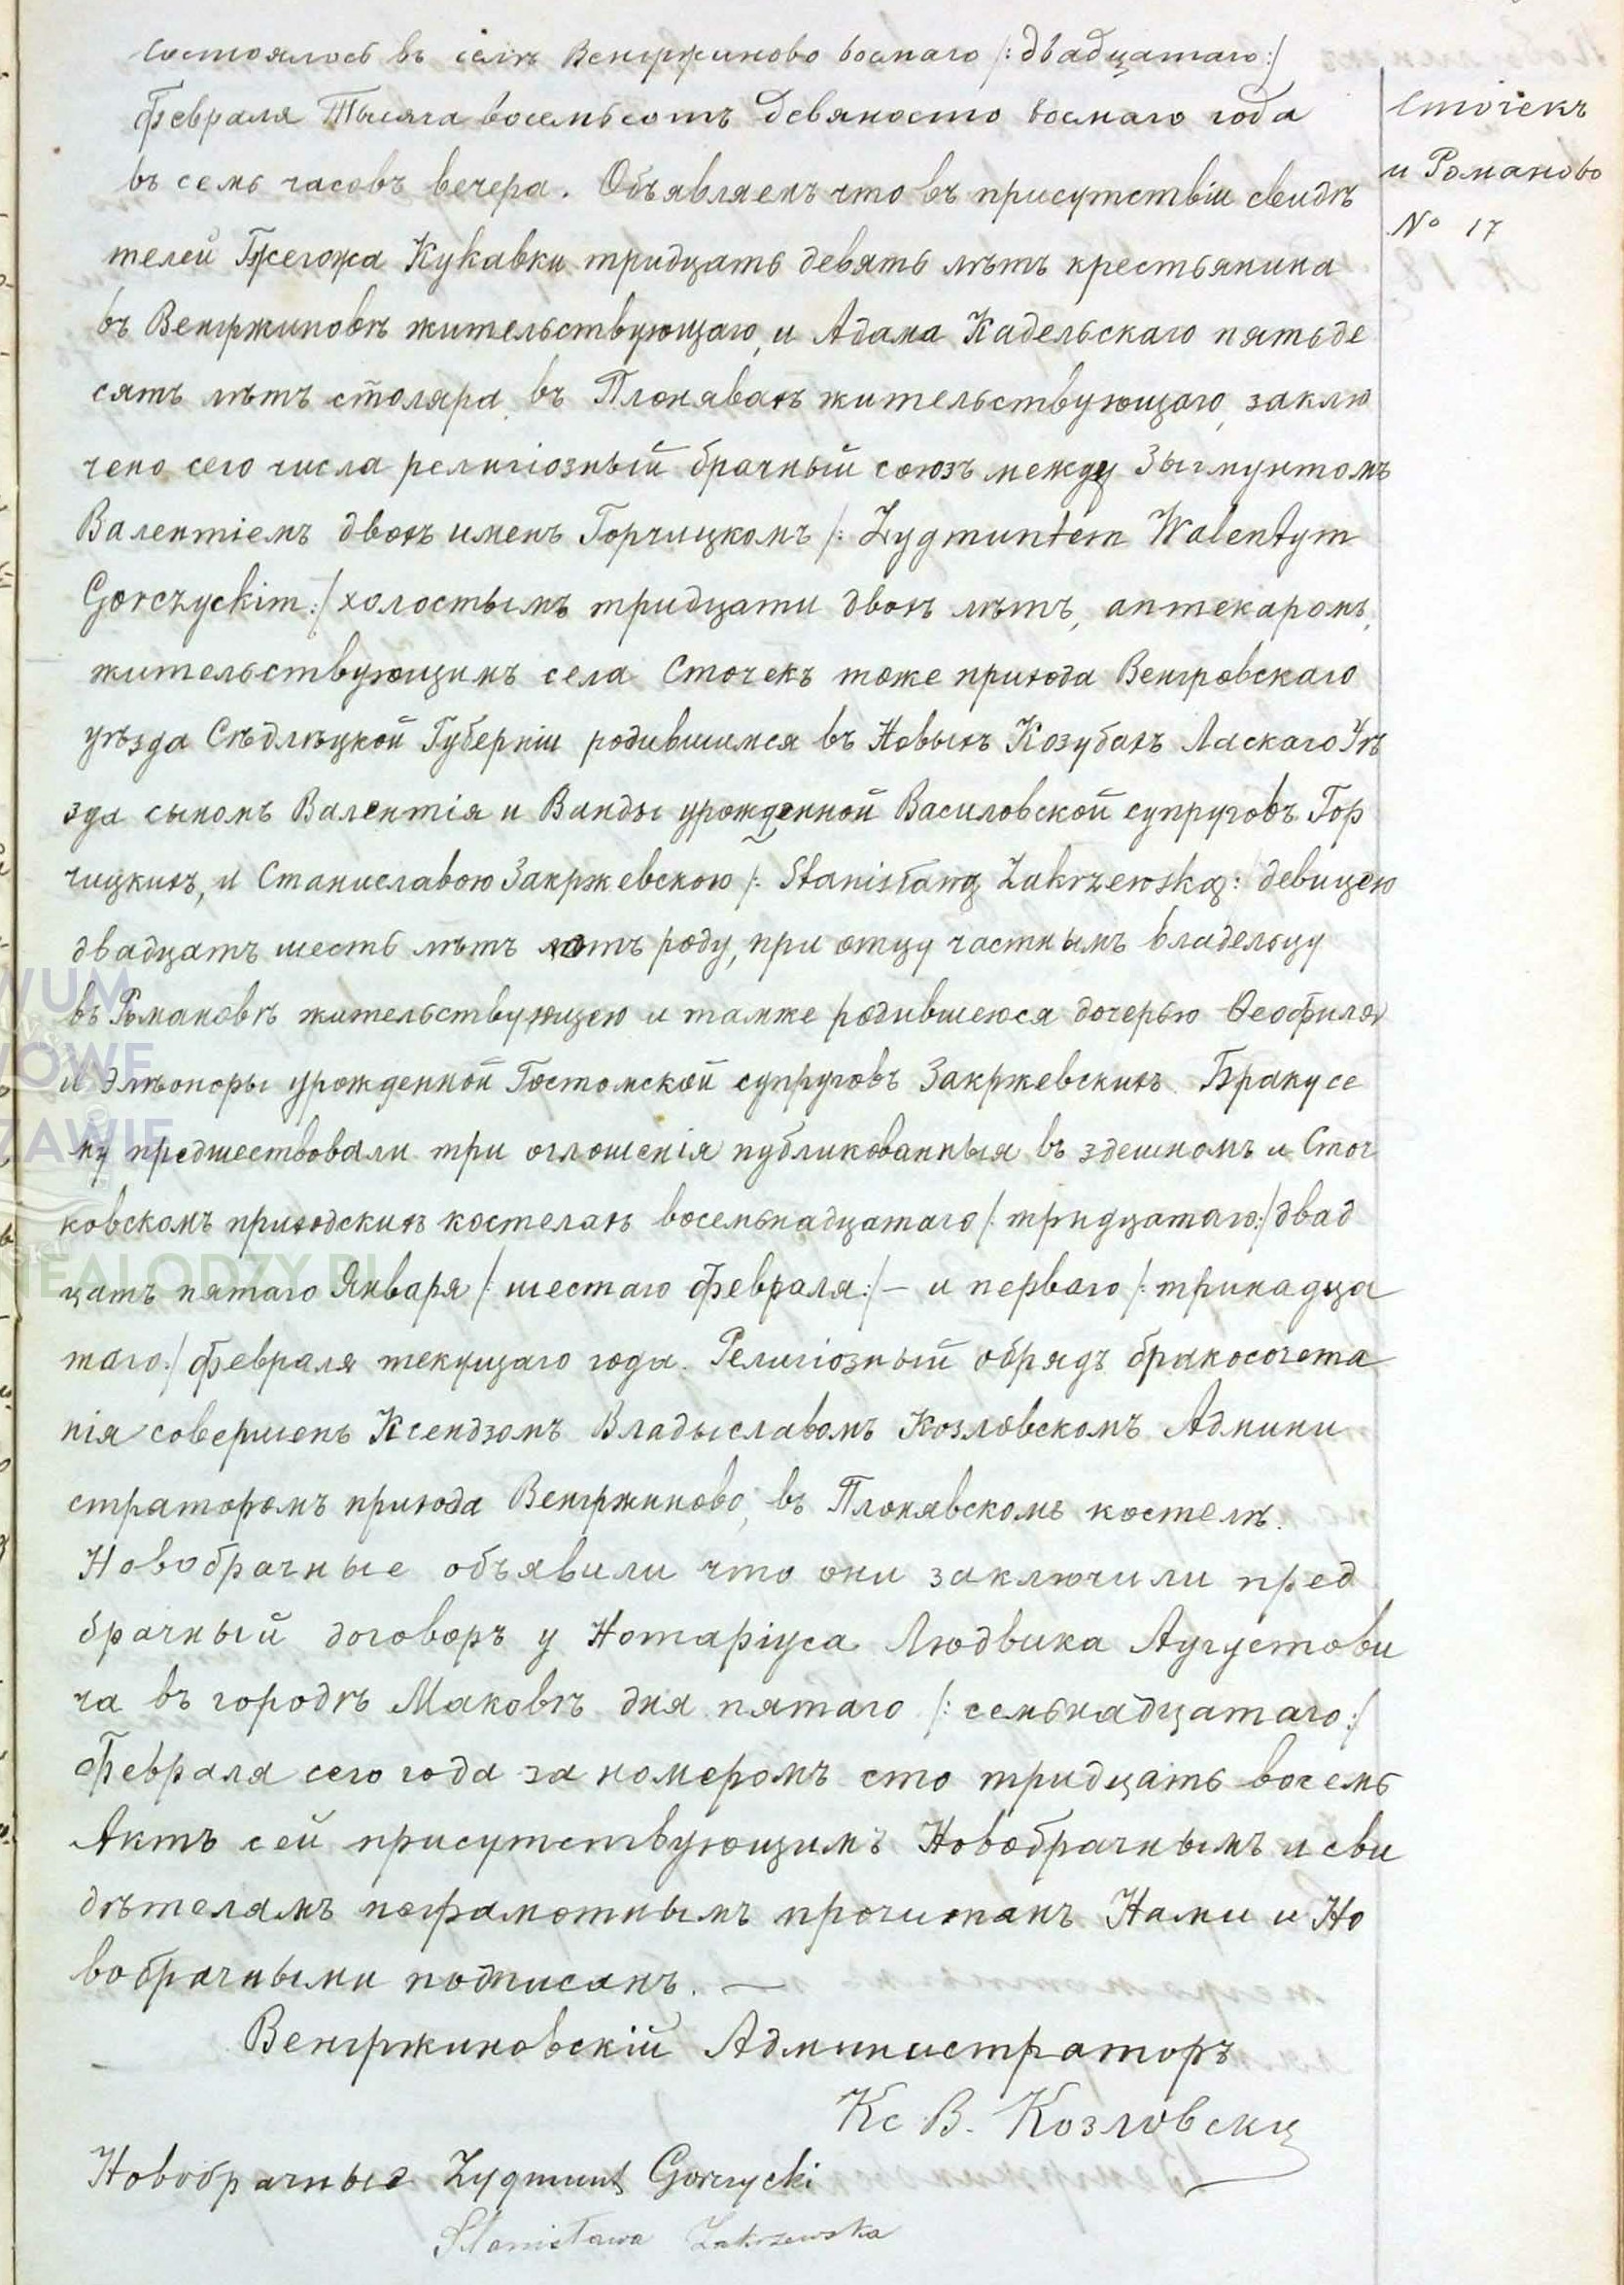 Состоялось въ селѣ Венгржиново восмаго /:двадцатаго:/
Февраля Тысяча восемьсотъ девяносто восмаго года
въ семь часовъ вечера. Объявляемъ что въ присутствіи свидѣ
телей Гжегожа Кукавки тридцать девять лѣтъ крестьянина
въ Венгржиновѣ жительствующаго, и Адама Кадельскаго пятьде
сятъ лѣтъ столяра въ Плонявахъ жительствующаго, заклю
чено сего числа религіозный брачный союзъ между Зыгмунтомъ
Валентіемъ двохъ именъ Горчицкомъ /: Zygmuntem Walentym
Gorczyckim:/ холостымъ тридцати двохъ лѣтъ, аптекаромъ,
жительствующимъ села Сточекъ тоже прихода Венгровскаго
уѣзда Сѣдлѣцкой Губерніи родившимся въ Новыхъ Козубахъ Ласкаго Уѣ
зда сыномъ Валентія и Ванды урожденной Василовской супруговъ Гор
чицкихъ, и Станиславою Закржевскою /: Stanisławą Zakrzewską: девицею
двадцать шесть лѣтъ роду, при отцу частнымъ владельцу
въ Романовѣ жительствующею и тамже родившеюся дочерью Ѳеофиля
и Элѣоноры урожденной Гостомской супруговъ Закржевскихъ. Браку се
му предшествовали три оглошенія публикованныя въ здешномъ и Сточ
ковскомъ приходскихъ костелахъ восемьнадцатаго /: тридцатаго:/ двад
цать пятаго Января /: шестаго Февраля:/ – и перваго /: тринадца
таго:/ Февраля текущаго года. Религіозный обрядъ бракосочета
нія совершенъ Ксендзомъ Владыславомъ Козловскомъ Админи
страторомъ прихода Венгржиново, въ Плонявскомъ костелѣ.
Новобрачные объявили что они заключили пред
брачный договоръ у Нотаріуса Людвика Аугустови
ча въ городѣ Маковѣ дня пятаго /: семьнадцатаго:/
Февраля сего года за номеромъ сто тридцать восемь
Актъ сей присутствующимъ Новобрачнымъ и сви
дѣтелямъ неграмотнымъ прочитанъ Нами и Но
вобрачными подписанъ. —
Венгржиновскій Администраторъ
Кс В. Козловски
Новобрачные Zygmunt Gorczycki
Stanisława Zakrzewska
Сточекъ
и Романово
№ 17